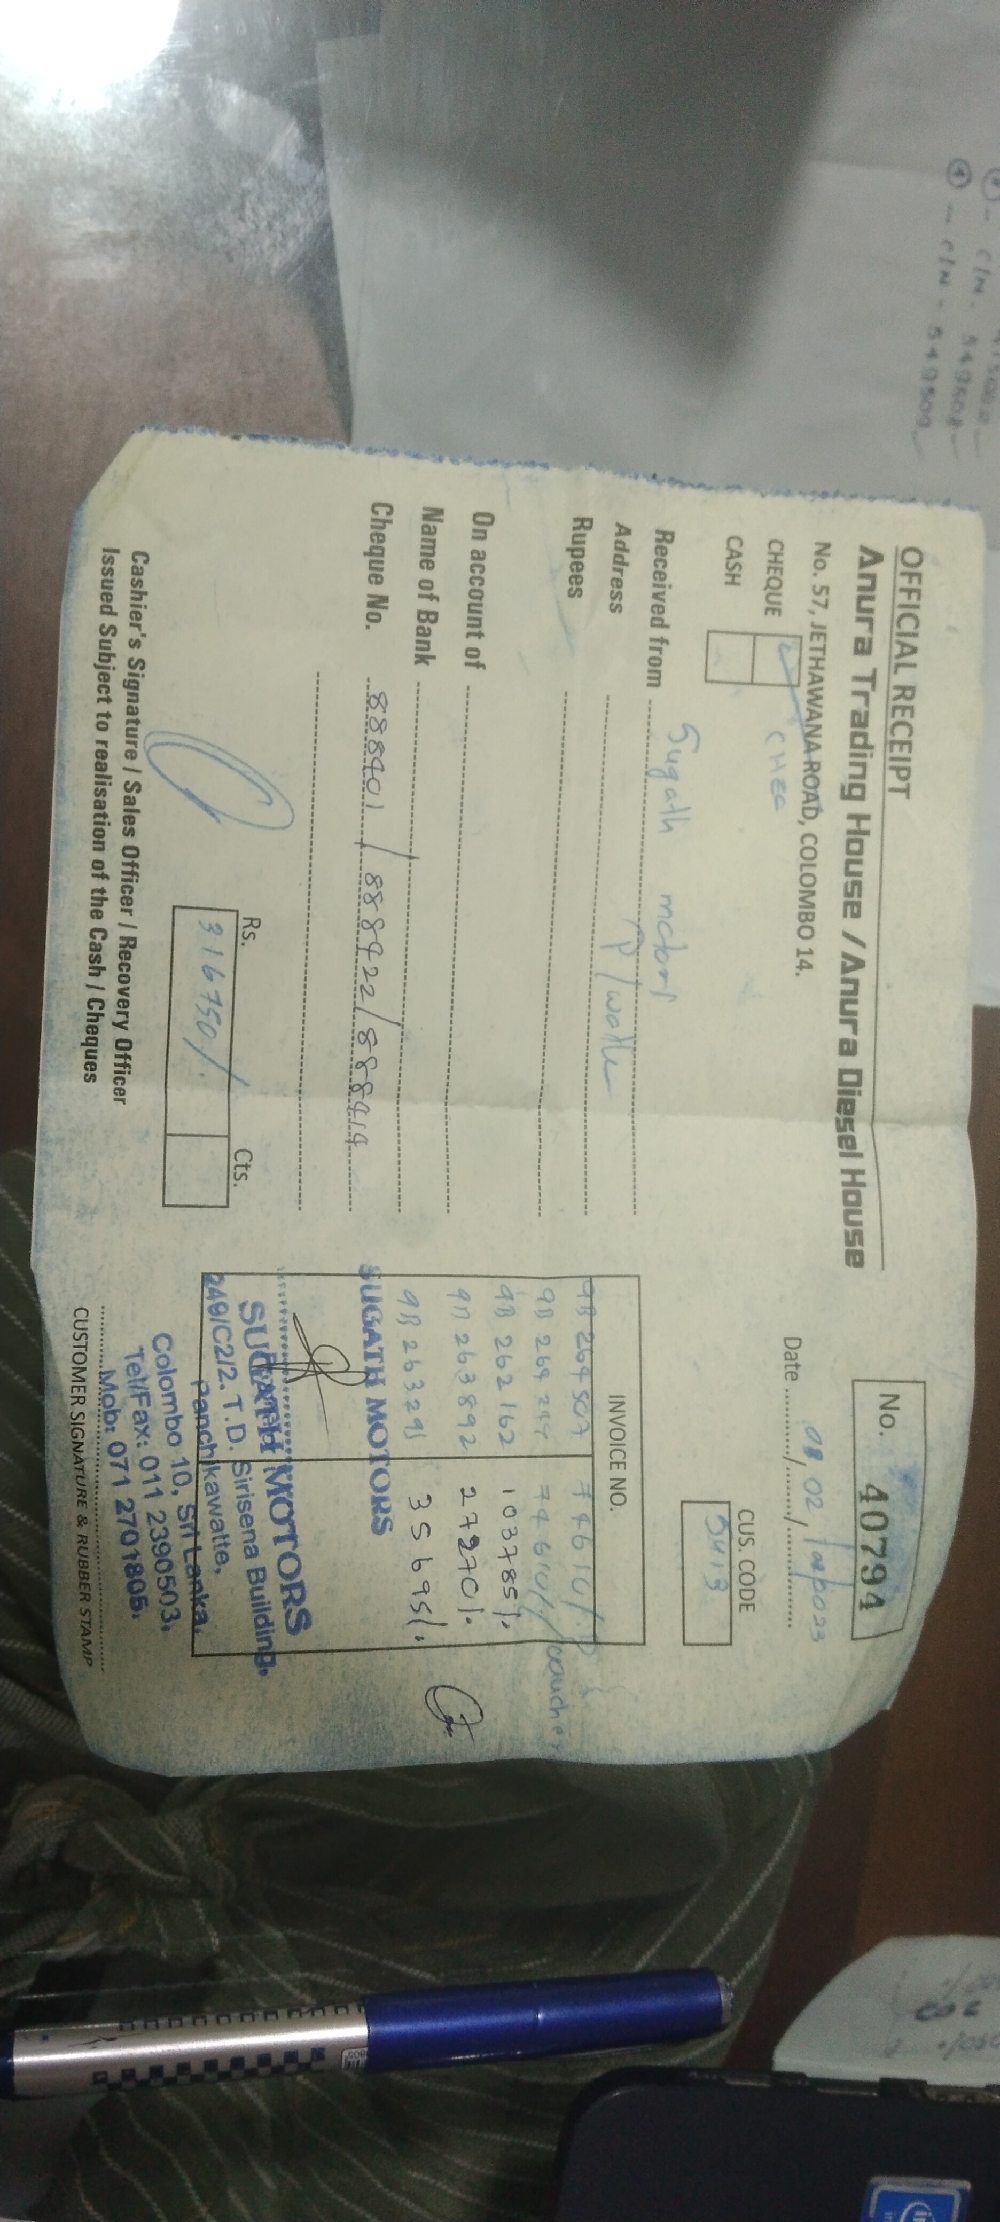 OFFICIAL RECEIPT
Anura Trading House / Anura Diesel House
No. 57, JETHAWANA ROAD, COLOMBO 14.
No. 40794
Date 08/02/2023
CHEQUE CHEQ
CASH
CUS. CODE
Received from Sugath motors
Address P/watte
Rupees
On account of
Name of Bank
Cheque No. 888401 / 888422 / 888419
INVOICE NO.
9B 264507 74610/.
9B 264244 74610/. voucher
9B 262162 103785/.
9B 263892 27270/.
9B 263295 35695/.
SUGATH MOTORS
Rs. Cts.
316750/.
SUGATH MOTORS
249/C2/2. T.D. Sirisena Building,
Panchikawatte,
Colombo 10, Sri Lanka.
Tel/Fax: 011 2390503,
Mob: 071 2701805.
Cashier's Signature / Sales Officer / Recovery Officer
Issued Subject to realisation of the Cash / Cheques
CUSTOMER SIGNATURE & RUBBER STAMP
CIN - 549508
④ - CIN - 549509